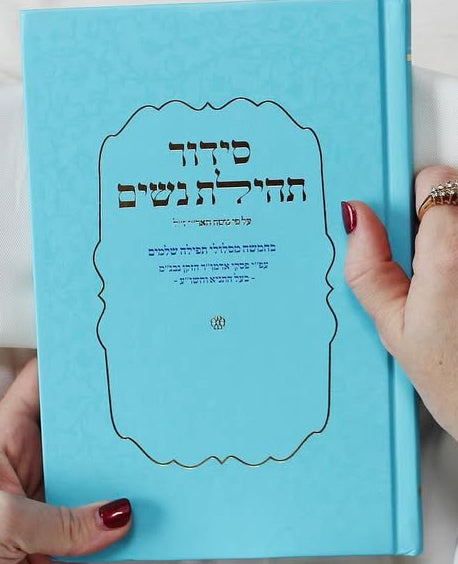 סידור
תהילת נשים
על פי נוסח האריז״ל
בחמשה מסלולי תפילה שלמים
עפ״י פסקי אדמו״ר הזקן נבג״מ
- בעל התניא והשו״ע -